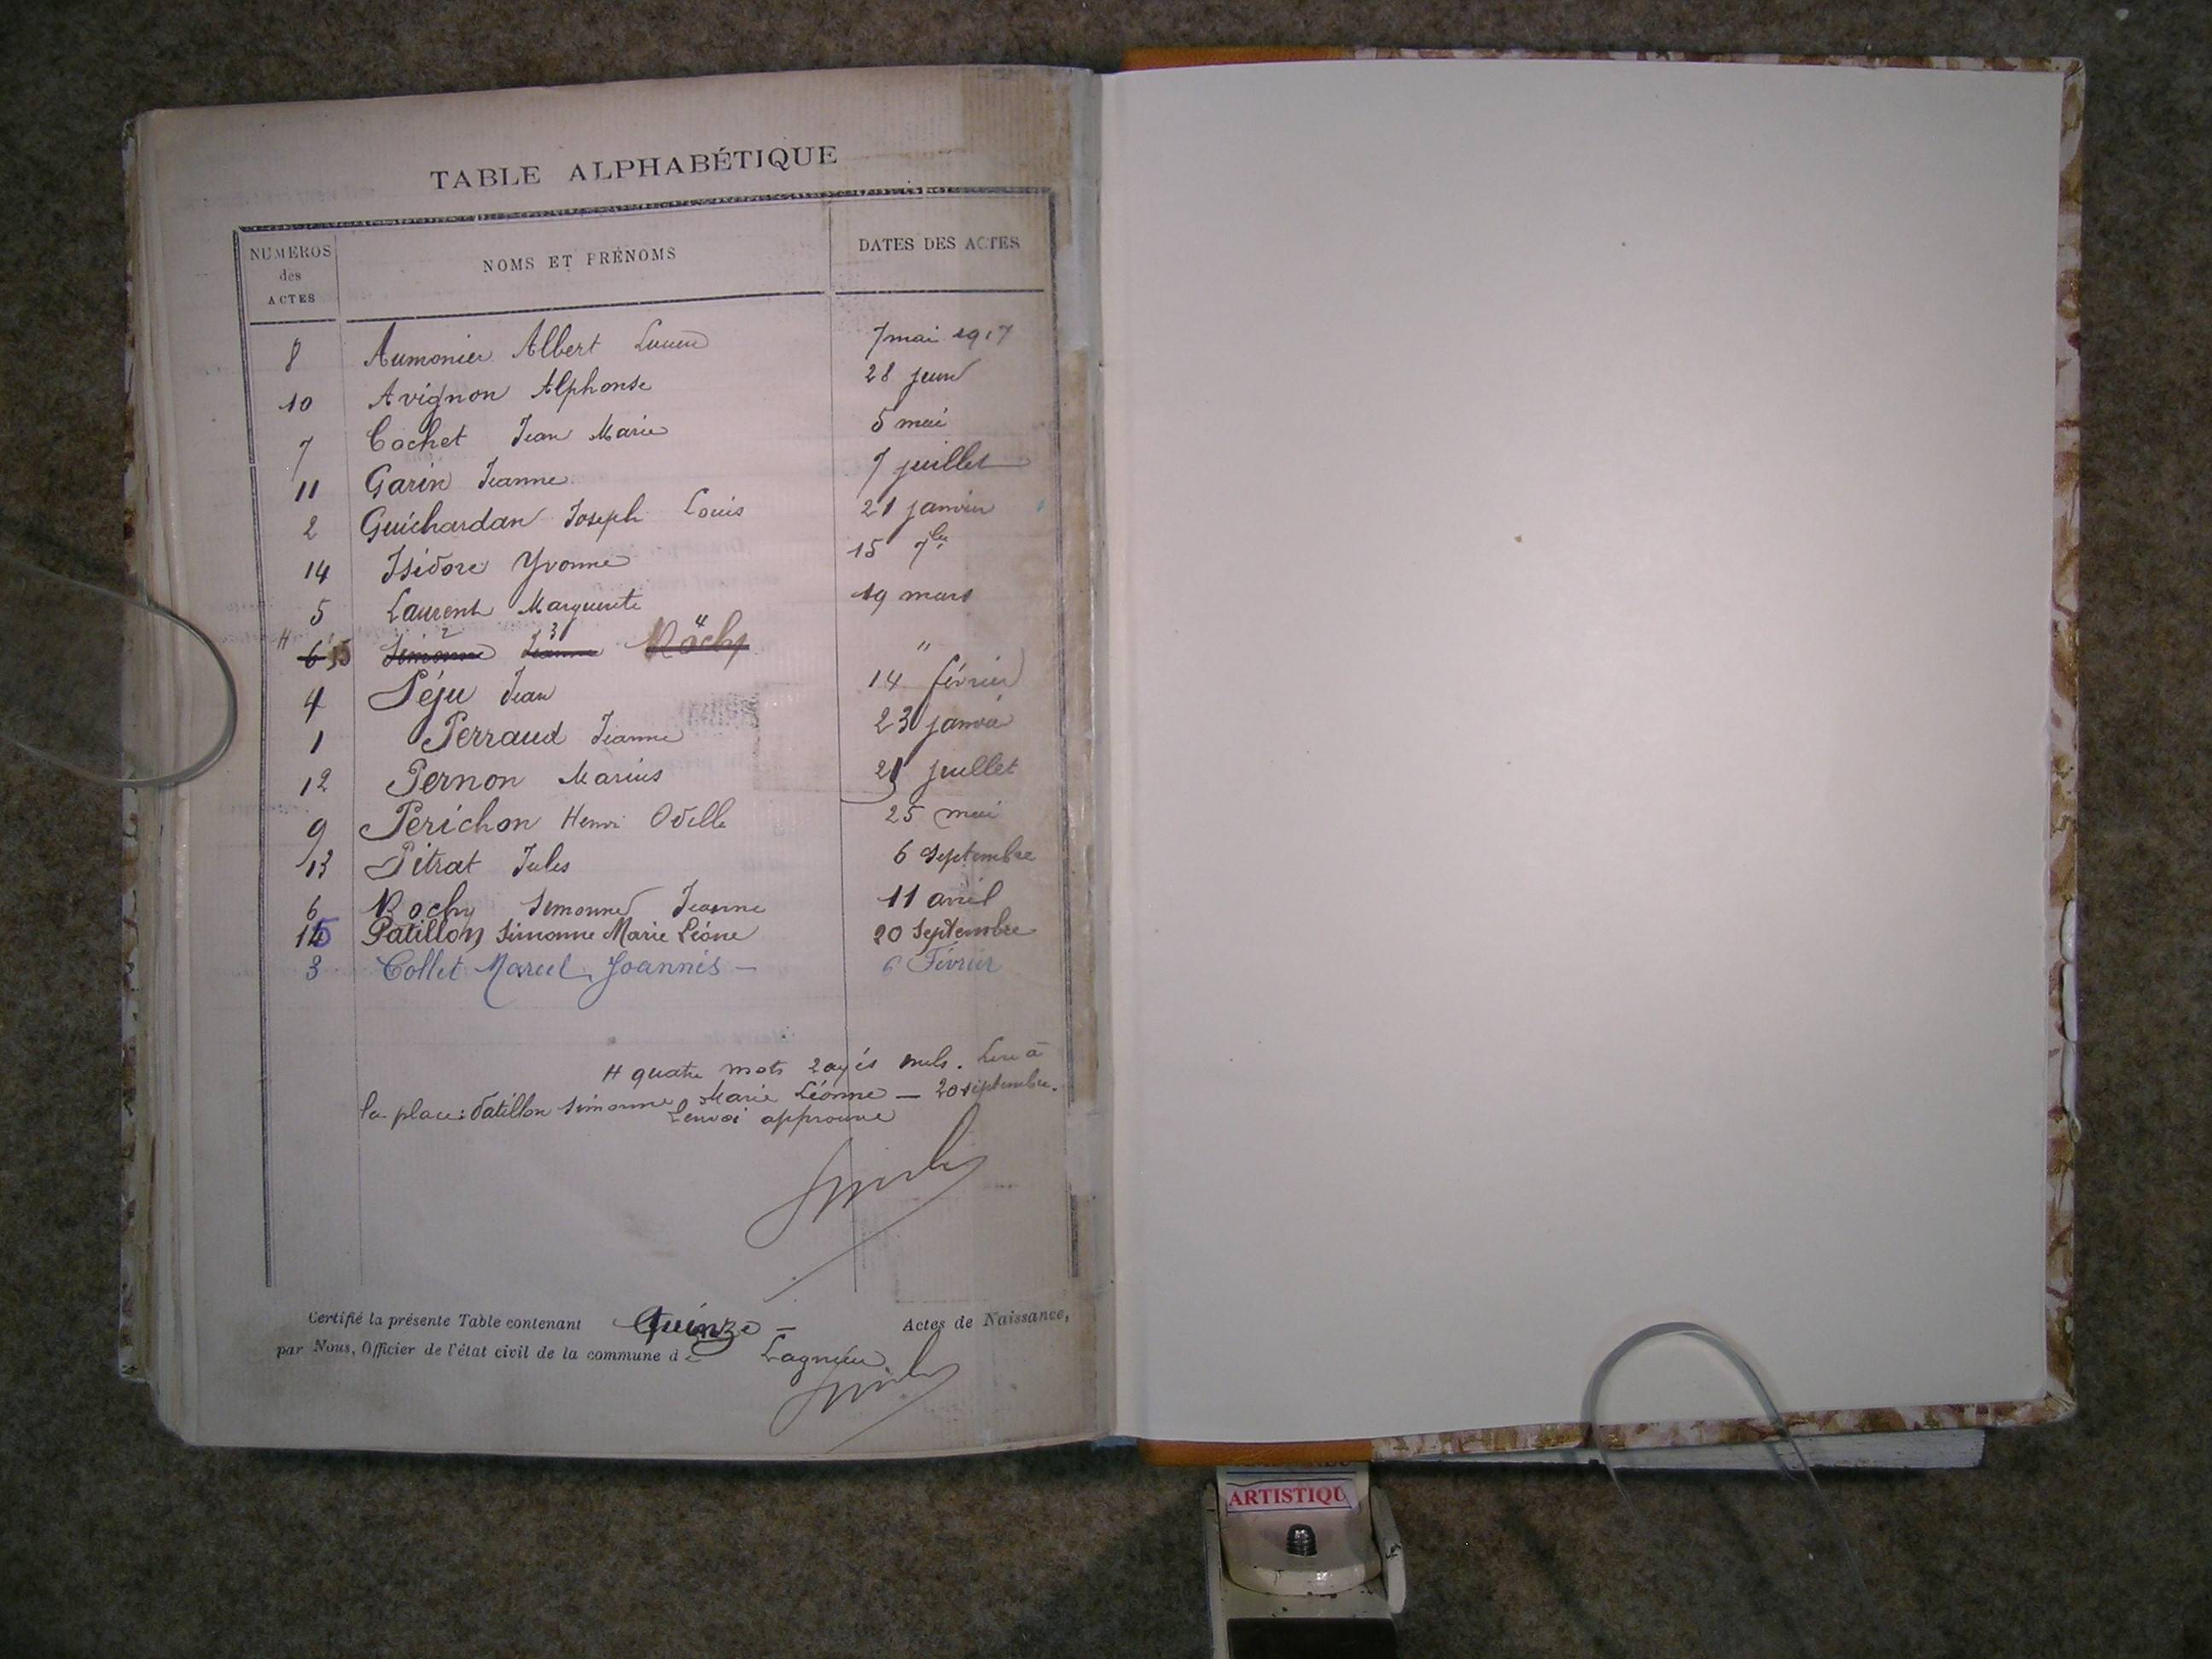 TABLE ALPHABÉTIQUE
NUMEROS des ACTES NOMS ET PRÉNOMS DATES DES ACTES
8 Aumonier Albert 7 mai 1917
10 Avignon Alphonse 28 juin
7 Cochet Jean Marie 5 mai
11 Garin Jeanne 7 juillet
2 Guichardan Joseph Louis 21 janvier
14 Isidore Yvonne 15 7bre
5 Laurent Marguerite 19 mars
6 15 Simonne Jeanne Rochy "
4 Péju Jean 14 février
1 Perraud Jeanne 23 janvier
12 Pernon Marius 21 juillet
9 Perichon Henri Odille 25 mai
13 Pitrat Jules 6 septembre
6 Rochy Simonne Jeanne 11 avril
15 Patillon Simonne Marie Léone 20 Septembre
3 Collet Marcel Joannès — 6 Février
H quatre mots rayés nuls. Lire à
la place: Patillon Simonne Marie Léonne — 20 septembre.
Renvoi approuvé
Certifié la présente Table contenant Quinze — Actes de Naissance,
par Nous, Officier de l'état civil de la commune de Lagnieu
ARTISTIQU